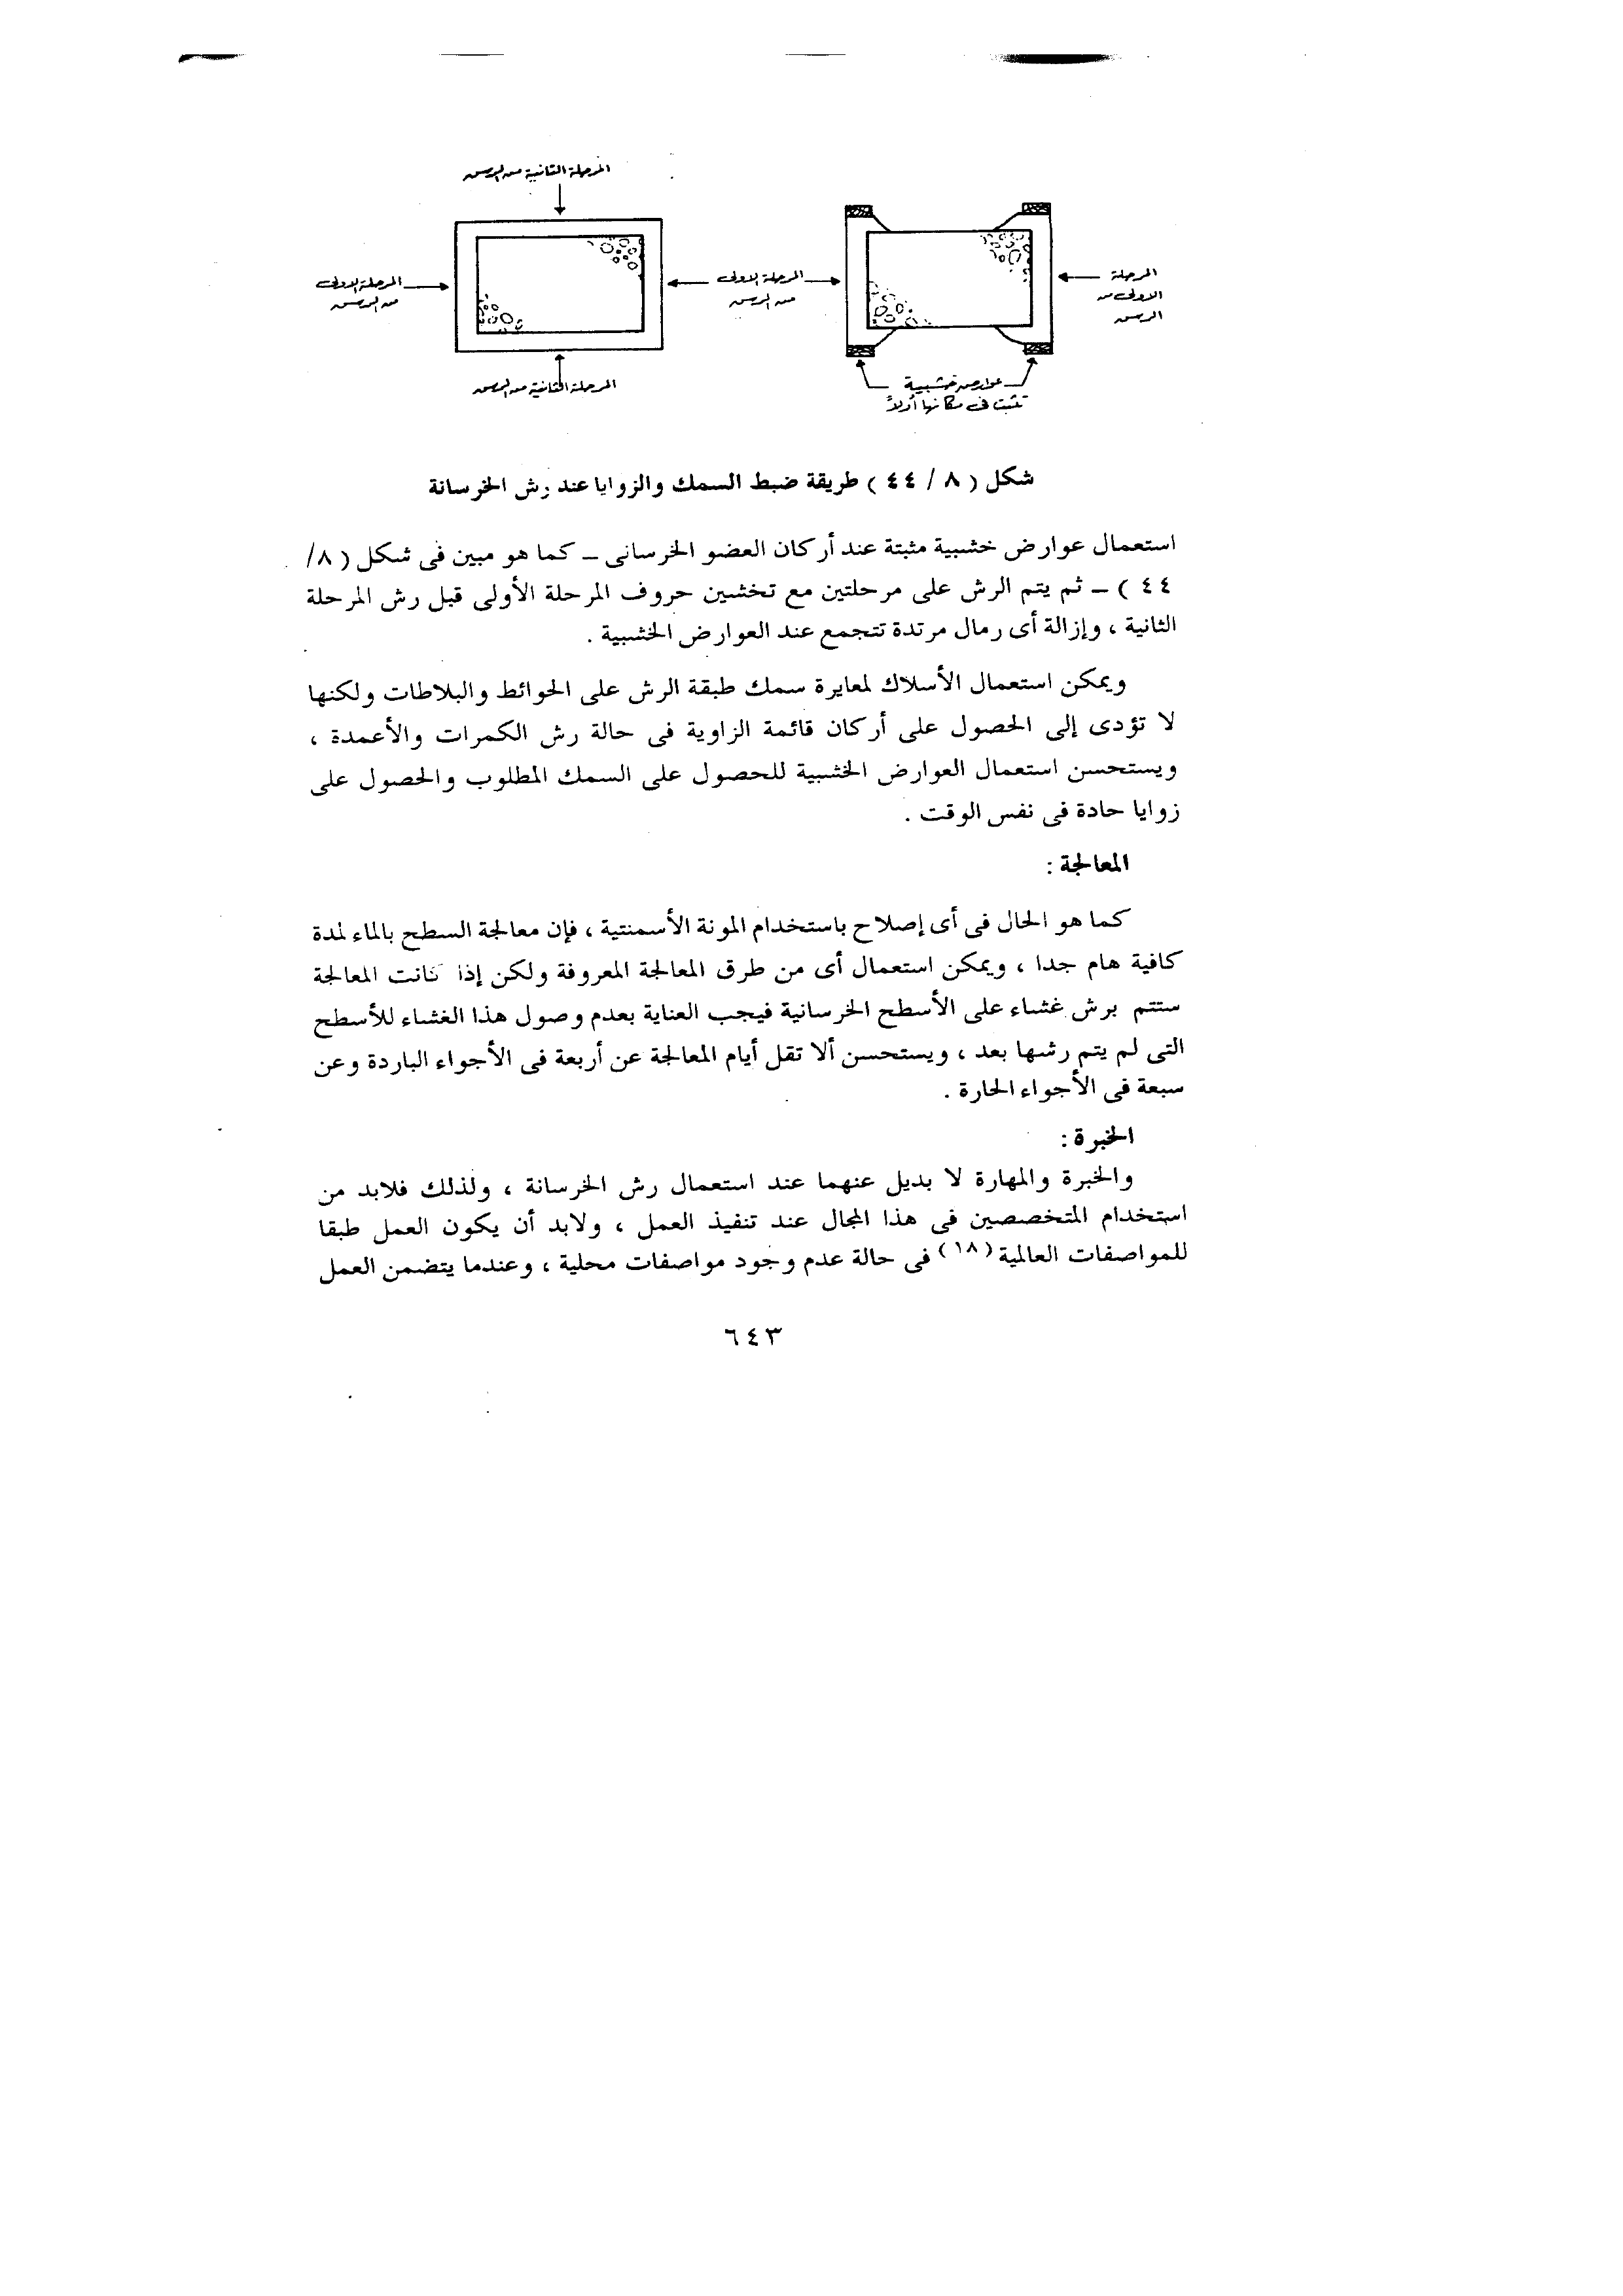 المرحلة الثانية من الرش
المرحلة الأولى
من الرش
المرحلة الأولى
من الرش
المرحلة
الاولى من
الرش
المرحلة الثانية من الرش
عوارض خشبية
تثبت فى مكانها أولاً
شكل ( ٨ / ٤٤ ) طريقة ضبط السمك والزوايا عند رش الخرسانة
استعمال عوارض خشبية مثبتة عند أركان العضو الخرسانى ــ كما هو مبين فى شكل ( ٨/
٤٤ ) ــ ثم يتم الرش على مرحلتين مع تخشين حروف المرحلة الأولى قبل رش المرحلة
الثانية ، وإزالة أى رمال مرتدة تتجمع عند العوارض الخشبية .
ويمكن استعمال الأسلاك لمعايرة سمك طبقة الرش على الحوائط والبلاطات ولكنها
لا تؤدى إلى الحصول على أركان قائمة الزاوية فى حالة رش الكمرات والأعمدة ،
ويستحسن استعمال العوارض الخشبية للحصول على السمك المطلوب والحصول على
زوايا حادة فى نفس الوقت .
المعالجة :
كما هو الحال فى أى إصلاح باستخدام المونة الأسمنتية ، فإن معالجة السطح بالماء لمدة
كافية هام جدا ، ويمكن استعمال أى من طرق المعالجة المعروفة ولكن إذا كانت المعالجة
ستتم برش غشاء على الأسطح الخرسانية فيجب العناية بعدم وصول هذا الغشاء للأسطح
التى لم يتم رشها بعد ، ويستحسن ألا تقل أيام المعالجة عن أربعة فى الأجواء الباردة وعن
سبعة فى الأجواء الحارة .
الخبرة :
والخبرة والمهارة لا بديل عنهما عند استعمال رش الخرسانة ، ولذلك فلابد من
استخدام المتخصصين فى هذا المجال عند تنفيذ العمل ، ولابد أن يكون العمل طبقا
للمواصفات العالمية (١٨) فى حالة عدم وجود مواصفات محلية ، وعندما يتضمن العمل
٦٤٣